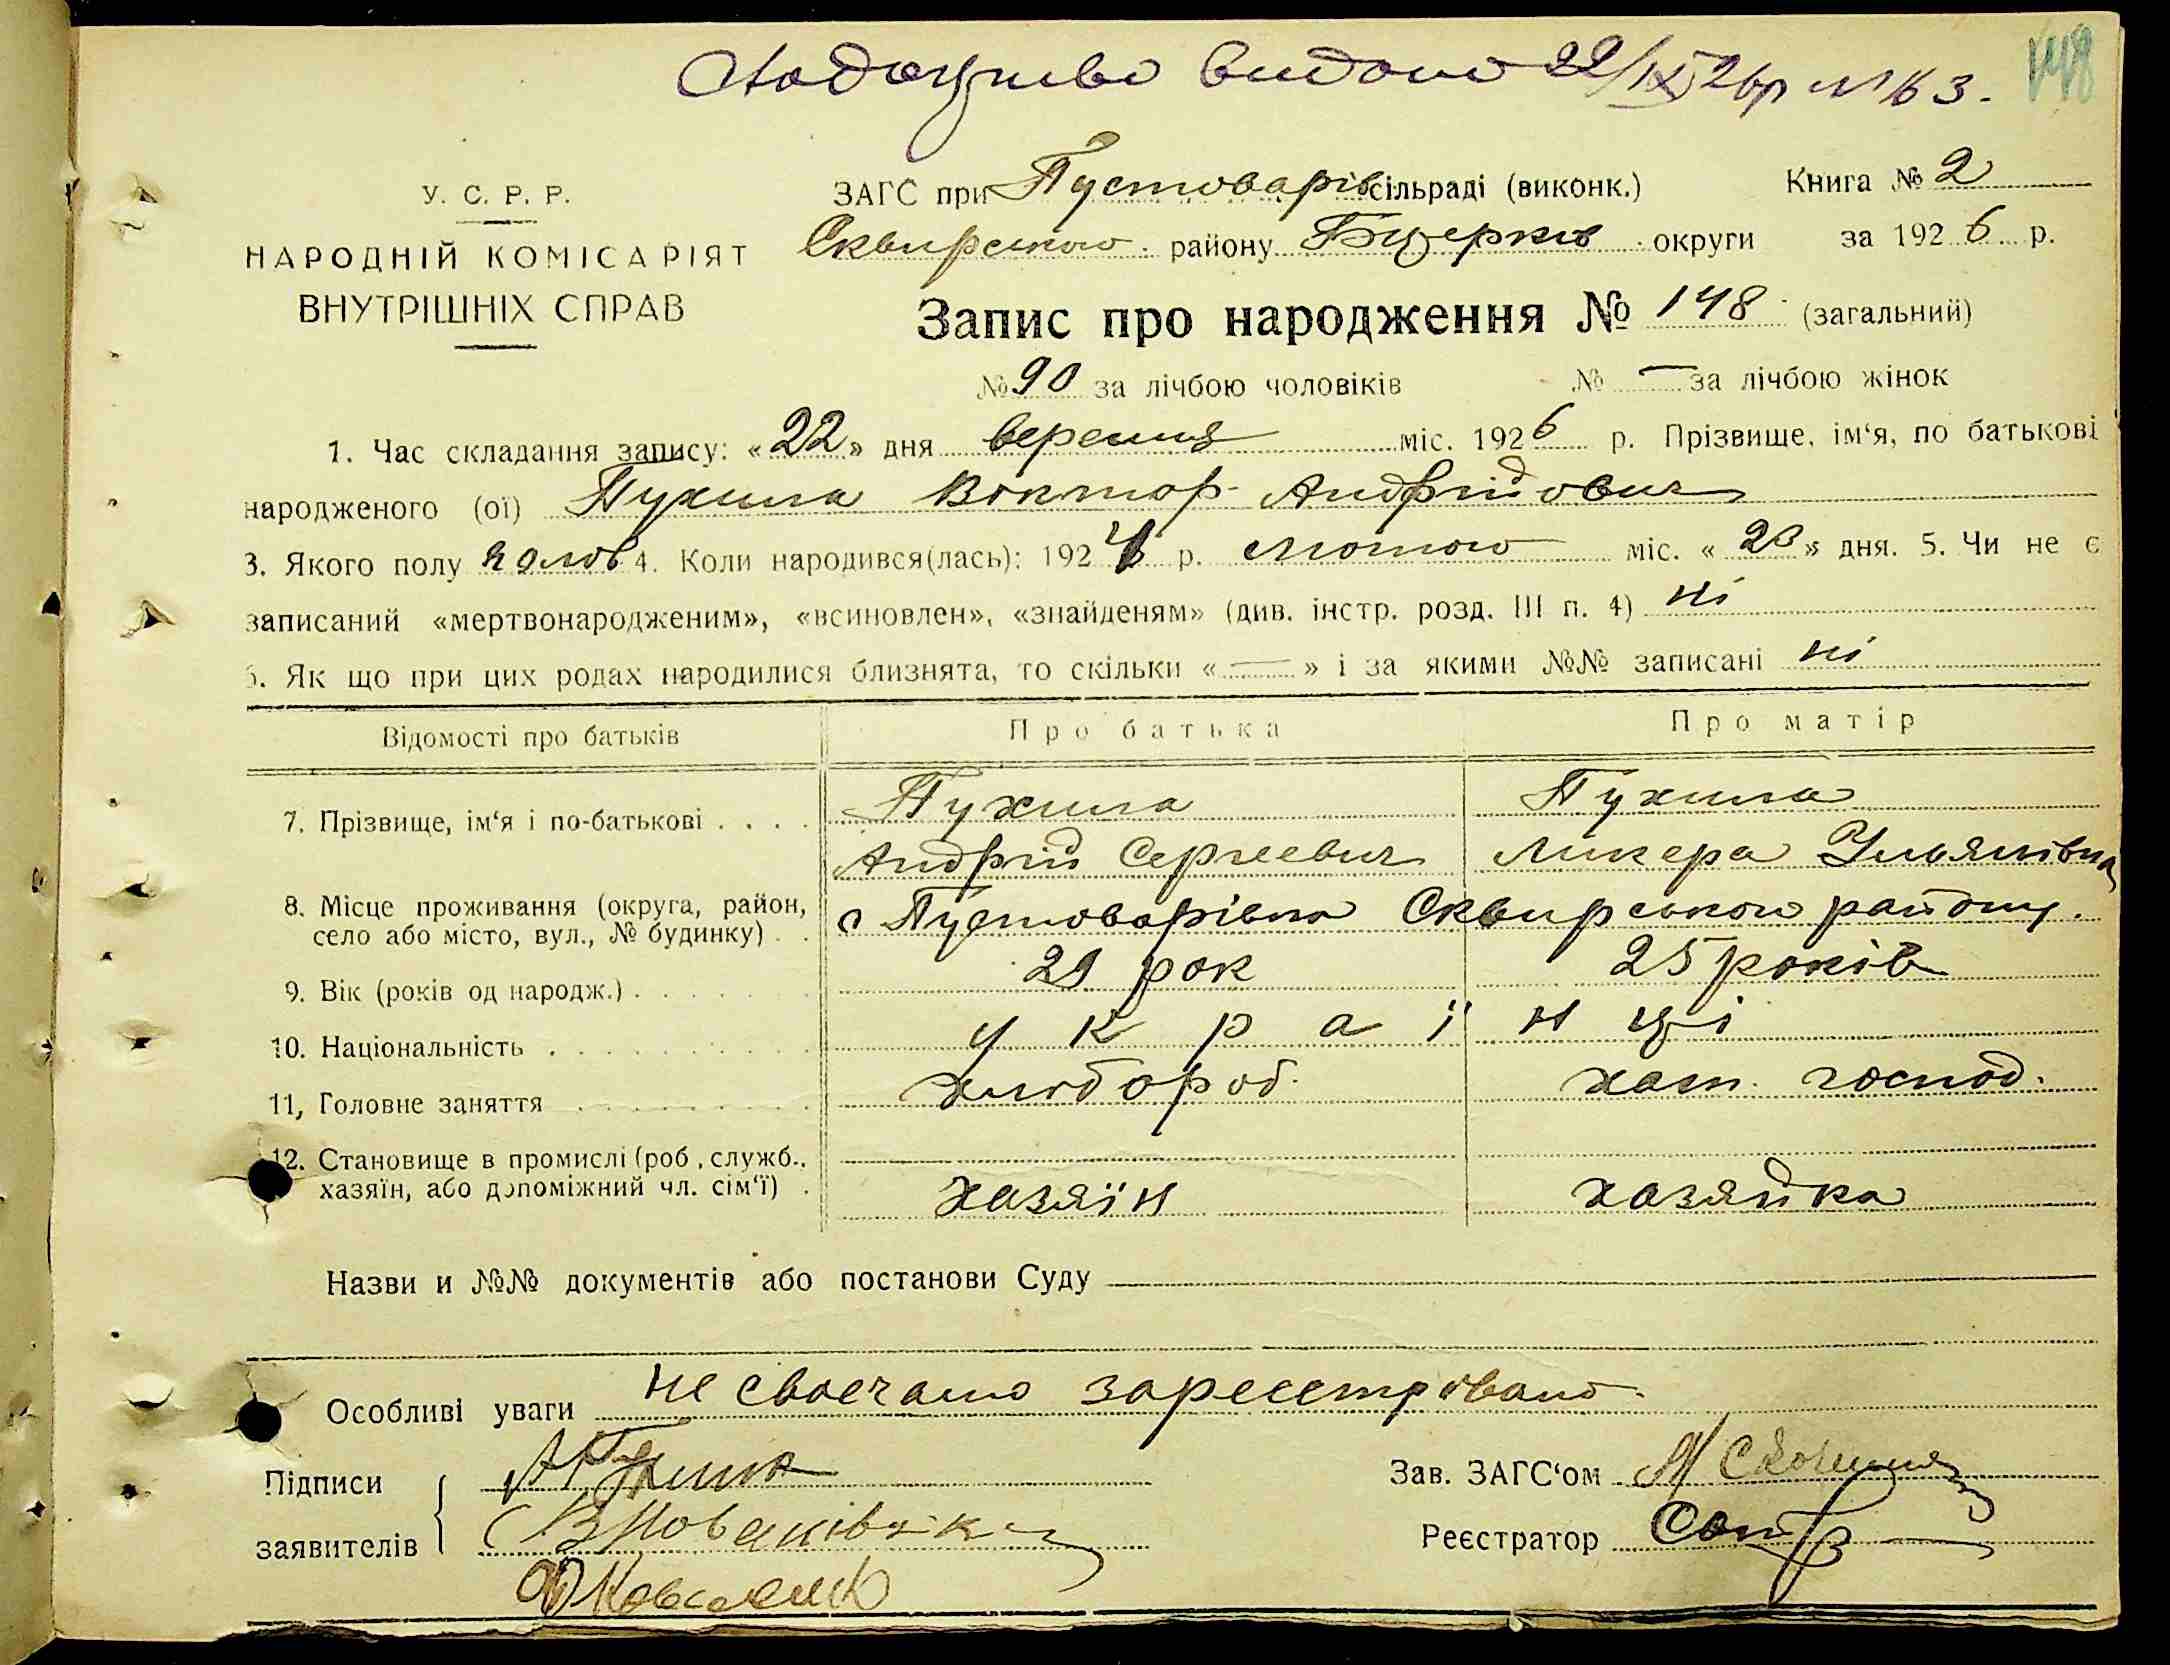 видано 22/IX 26р № 63. 148
У. С. Р. Р.
НАРОДНІЙ КОМІСАРІЯТ
ВНУТРІШНІХ СПРАВ
ЗАГС при Пустоварів сільраді (виконк.) Книга № 2
Сквирського району Б церків округи за 1926 р.
Запис про народження № 148 (загальний)
№ 90 за лічбою чоловіків № — за лічбою жінок
1. Час складання запису: «22» дня вересня міс. 1926 р. Прізвище, ім‘я, по батькові
народженого (ої) Пухила Віктор Андрійович
3. Якого полу чолов 4. Коли народився(лась): 192 р. лютого міс. « » дня. 5. Чи не є
записаний «мертвонародженим», «всиновлен», «знайденям» (див. інстр. розд. III п. 4) ні
6. Як що при цих родах народилися близнята, то скільки «—» і за якими №№ записані ні
Відомості про батьків Про батька Про матір
7. Прізвище, ім‘я і по-батькові . . . . Пухила Пухила
Андрій Сергеевич Ликера Ульянівна
8. Місце проживання (округа, район,
село або місто, вул., № будинку) . . с Пустоварівка Сквирського району.
9. Вік (років од народж.) . . . . . 29 рок 25 років
10. Національність . . . . . українці
11, Головне заняття . . . . . хлібороб. хат. господ.
12. Становище в промислі (роб., служб.,
хазяїн, або допоміжний чл. сім‘ї) . хазяїн хазяйка
Назви и №№ документів або постанови Суду
Особливі уваги не своєчасно зареєстровано.
Підписи А Пухила Зав. ЗАГС‘ом
заявителів Реєстратор